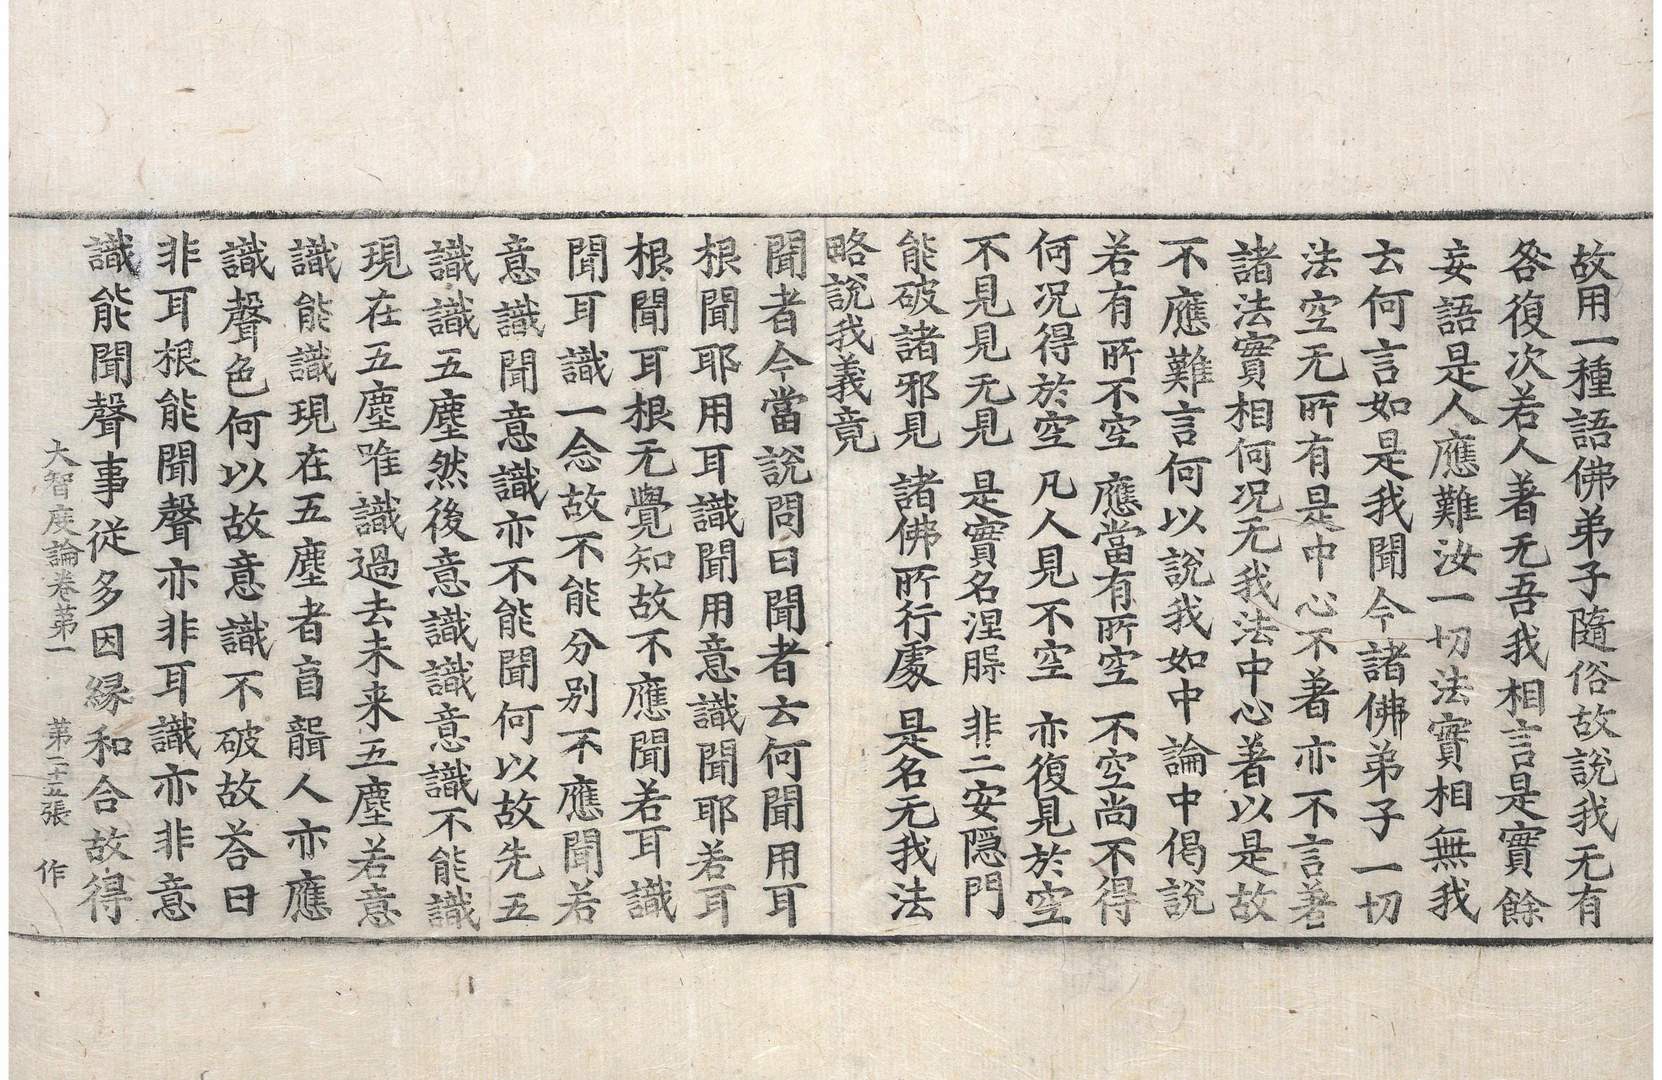 故用一種語佛弟子隨俗故說我无有
咎復次若人著无吾我相言是實餘
妄語是人應難汝一切法實相無我
云何言如是我聞今諸佛弟子一切
法空无所有是中心不著亦不言著
諸法實相何況无我法中心著以是故
不應難言何以說我如中論中偈說
若有所不空 應當有所空 不空尚不得
何况得於空 凡人見不空 亦復見於空
不見見无見 是實名涅槃 非二安隱門
能破諸邪見 諸佛所行處 是名无我法
略說我義竟
聞者今當說問曰聞者云何聞用耳
根聞耶用耳識聞用意識聞耶若耳
根聞耳根无覺知故不應聞若耳識
聞耳識一念故不能分別不應聞若
意識聞意識亦不能聞何以故先五
識識五塵然後意識識意識不能識
現在五塵唯識過去未来五塵若意
識能識現在五塵者盲聾人亦應
識聲色何以故意識不破故荅曰
非耳根能聞聲亦非耳識亦非意
識能聞聲事從多因緣和合故得
大智度論卷第一 第二十五張 作